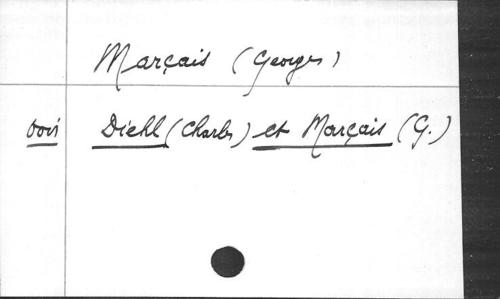 Marçais (Georges)
voir Diehl (Charles) et Marçais (G.)